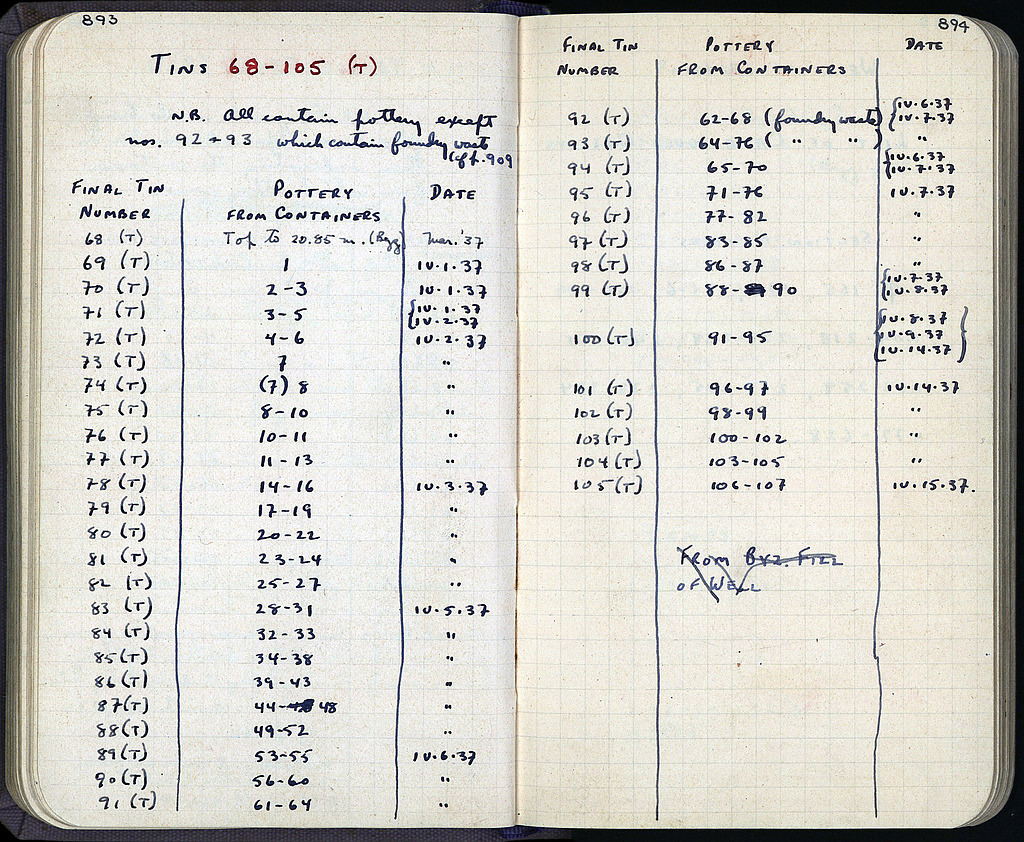 893
TINS 68-105 (T)
N.B. All contain pottery except
nos. 92 + 93 which contain foundry waste
(cf p. 909
FINAL TIN NUMBER POTTERY FROM CONTAINERS DATE
68 (T) Top to 20.85 m. (Byz) Mar. '37
69 (T) 1 IV.1.37
70 (T) 2-3 IV.1.37
71 (T) 3-5 {IV.1.37 IV.2.37
72 (T) 4-6 IV.2.37
73 (T) 7 "
74 (T) (7) 8 "
75 (T) 8-10 "
76 (T) 10-11 "
77 (T) 11-13 "
78 (T) 14-16 IV.3.37
79 (T) 17-19 "
80 (T) 20-22 "
81 (T) 23-24 "
82 (T) 25-27 "
83 (T) 28-31 IV.5.37
84 (T) 32-33 "
85 (T) 34-38 "
86 (T) 39-43 "
87 (T) 44-48 "
88 (T) 49-52 "
89 (T) 53-55 IV.6.37
90 (T) 56-60 "
91 (T) 61-64 "
894
FINAL TIN NUMBER POTTERY FROM CONTAINERS DATE
92 (T) 62-68 (foundry waste) {IV.6.37 IV.7.37
93 (T) 64-76 ( " " ) "
94 (T) 65-70 {IV.6.37 IV.7.37
95 (T) 71-76 IV.7.37
96 (T) 77-82 "
97 (T) 83-85 "
98 (T) 86-87 "
99 (T) 88-90 {IV.7.37 IV.8.37
100 (T) 91-95 {IV.8.37 IV.9.37 IV.14.37}
101 (T) 96-97 IV.14.37
102 (T) 98-99 "
103 (T) 100-102 "
104 (T) 103-105 "
105 (T) 106-107 IV.15.37.
FROM BYZ. FILL
OF WELL